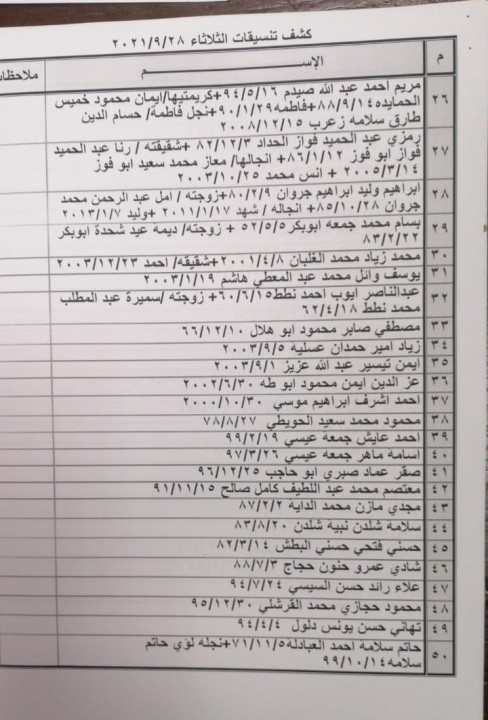 كشف تنسيقات الثلاثاء ٢٠٢١/٩/٢٨
م الإســـــــم ملاحظات
٢٦ مريم احمد عبد الله صيدم ٩٤/٥/١٦+كريمتيها/ايمان محمود خميس
الحمايده ٨٨/٩/١٤+فاطمه٩٠/١/٢٩+نجل فاطمة/ حسام الدين
طارق سلامه زعرب ٢٠٠٨/١٢/١٥
٢٧ رمزي عبد الحميد فواز الحداد ٨٢/١٢/٣+ شقيقته / رنا عبد الحميد
فواز ابو فوز ٨٦/١/١٢+ انجالها/ معاز محمد سعيد ابو فوز
٢٠٠٥/٣/١٤ + انس محمد ٢٠٠٣/١٠/٢٥
٢٨ ابراهيم وليد ابراهيم جروان ٨٠/٢/٩+زوجته / امل عبد الرحمن محمد
جروان ٨٥/١٠/٢٨+ انجاله / شهد ٢٠١١/١/١٧ +وليد ٢٠١٣/١/٧
٢٩ بسام محمد جمعه ابوبكر ٥٢/٥/٥ + زوجته/ ديمة عيد شحدة ابوبكر
٨٣/٢/٢٢
٣٠ محمد زياد محمد الغلبان ٢٠٠١/٤/٨+شقيقه/ احمد ٢٠٠٣/١٢/٢٣
٣١ يوسف وائل محمد عبد المعطي هاشم ٢٠٠٣/١/١٩
٣٢ عبدالناصر ايوب احمد نطط٦٠/٦/١٥+ زوجته /سميرة عبد المطلب
محمد نطط ٦٢/٤/١٨
٣٣ مصطفي صابر محمود ابو هلال ٦٦/١٢/١٠
٣٤ زياد امير حمدان عسليه ٢٠٠٣/٩/٥
٣٥ ايمن تيسير عبد الله عزيز ٢٠٠٣/٩/١
٣٦ عز الدين ايمن محمود ابو طه ٢٠٠٢/٦/٣٠
٣٧ احمد اشرف ابراهيم موسي ٢٠٠٠/١٠/٣٠
٣٨ محمود محمد سعيد الحويطي ٧٨/٨/٢٧
٣٩ احمد عايش جمعه عيسي ٩٩/٢/١٩
٤٠ اسامه ماهر جمعه عيسي ٩٧/٣/٢٦
٤١ صقر عماد صبري ابو حاجب ٩٦/١٢/٢٥
٤٢ معتصم محمد عبد اللطيف كامل صالح ٩١/١١/١٥
٤٣ مجدي مازن محمد الداية ٨٧/٢/٢
٤٤ سلامه شلدن نبية شلدن ٨٣/٨/٢٠
٤٥ حسني فتحي حسني البطش ٨٢/٣/١٤
٤٦ شادي عمرو حنون حجاج ٨٨/٧/٣
٤٧ علاء رائد حسن السيسي ٩٤/٧/٢٤
٤٨ محمود حجازي محمد القرشلي ٩٥/١٢/٣٠
٤٩ تهاني حسن يونس دلول ٩٤/٤/٤
٥٠ حاتم سلامه احمد العبادله٧١/١١/٥+نجله لؤي حاتم
سلامه٩٩/١٠/١٤